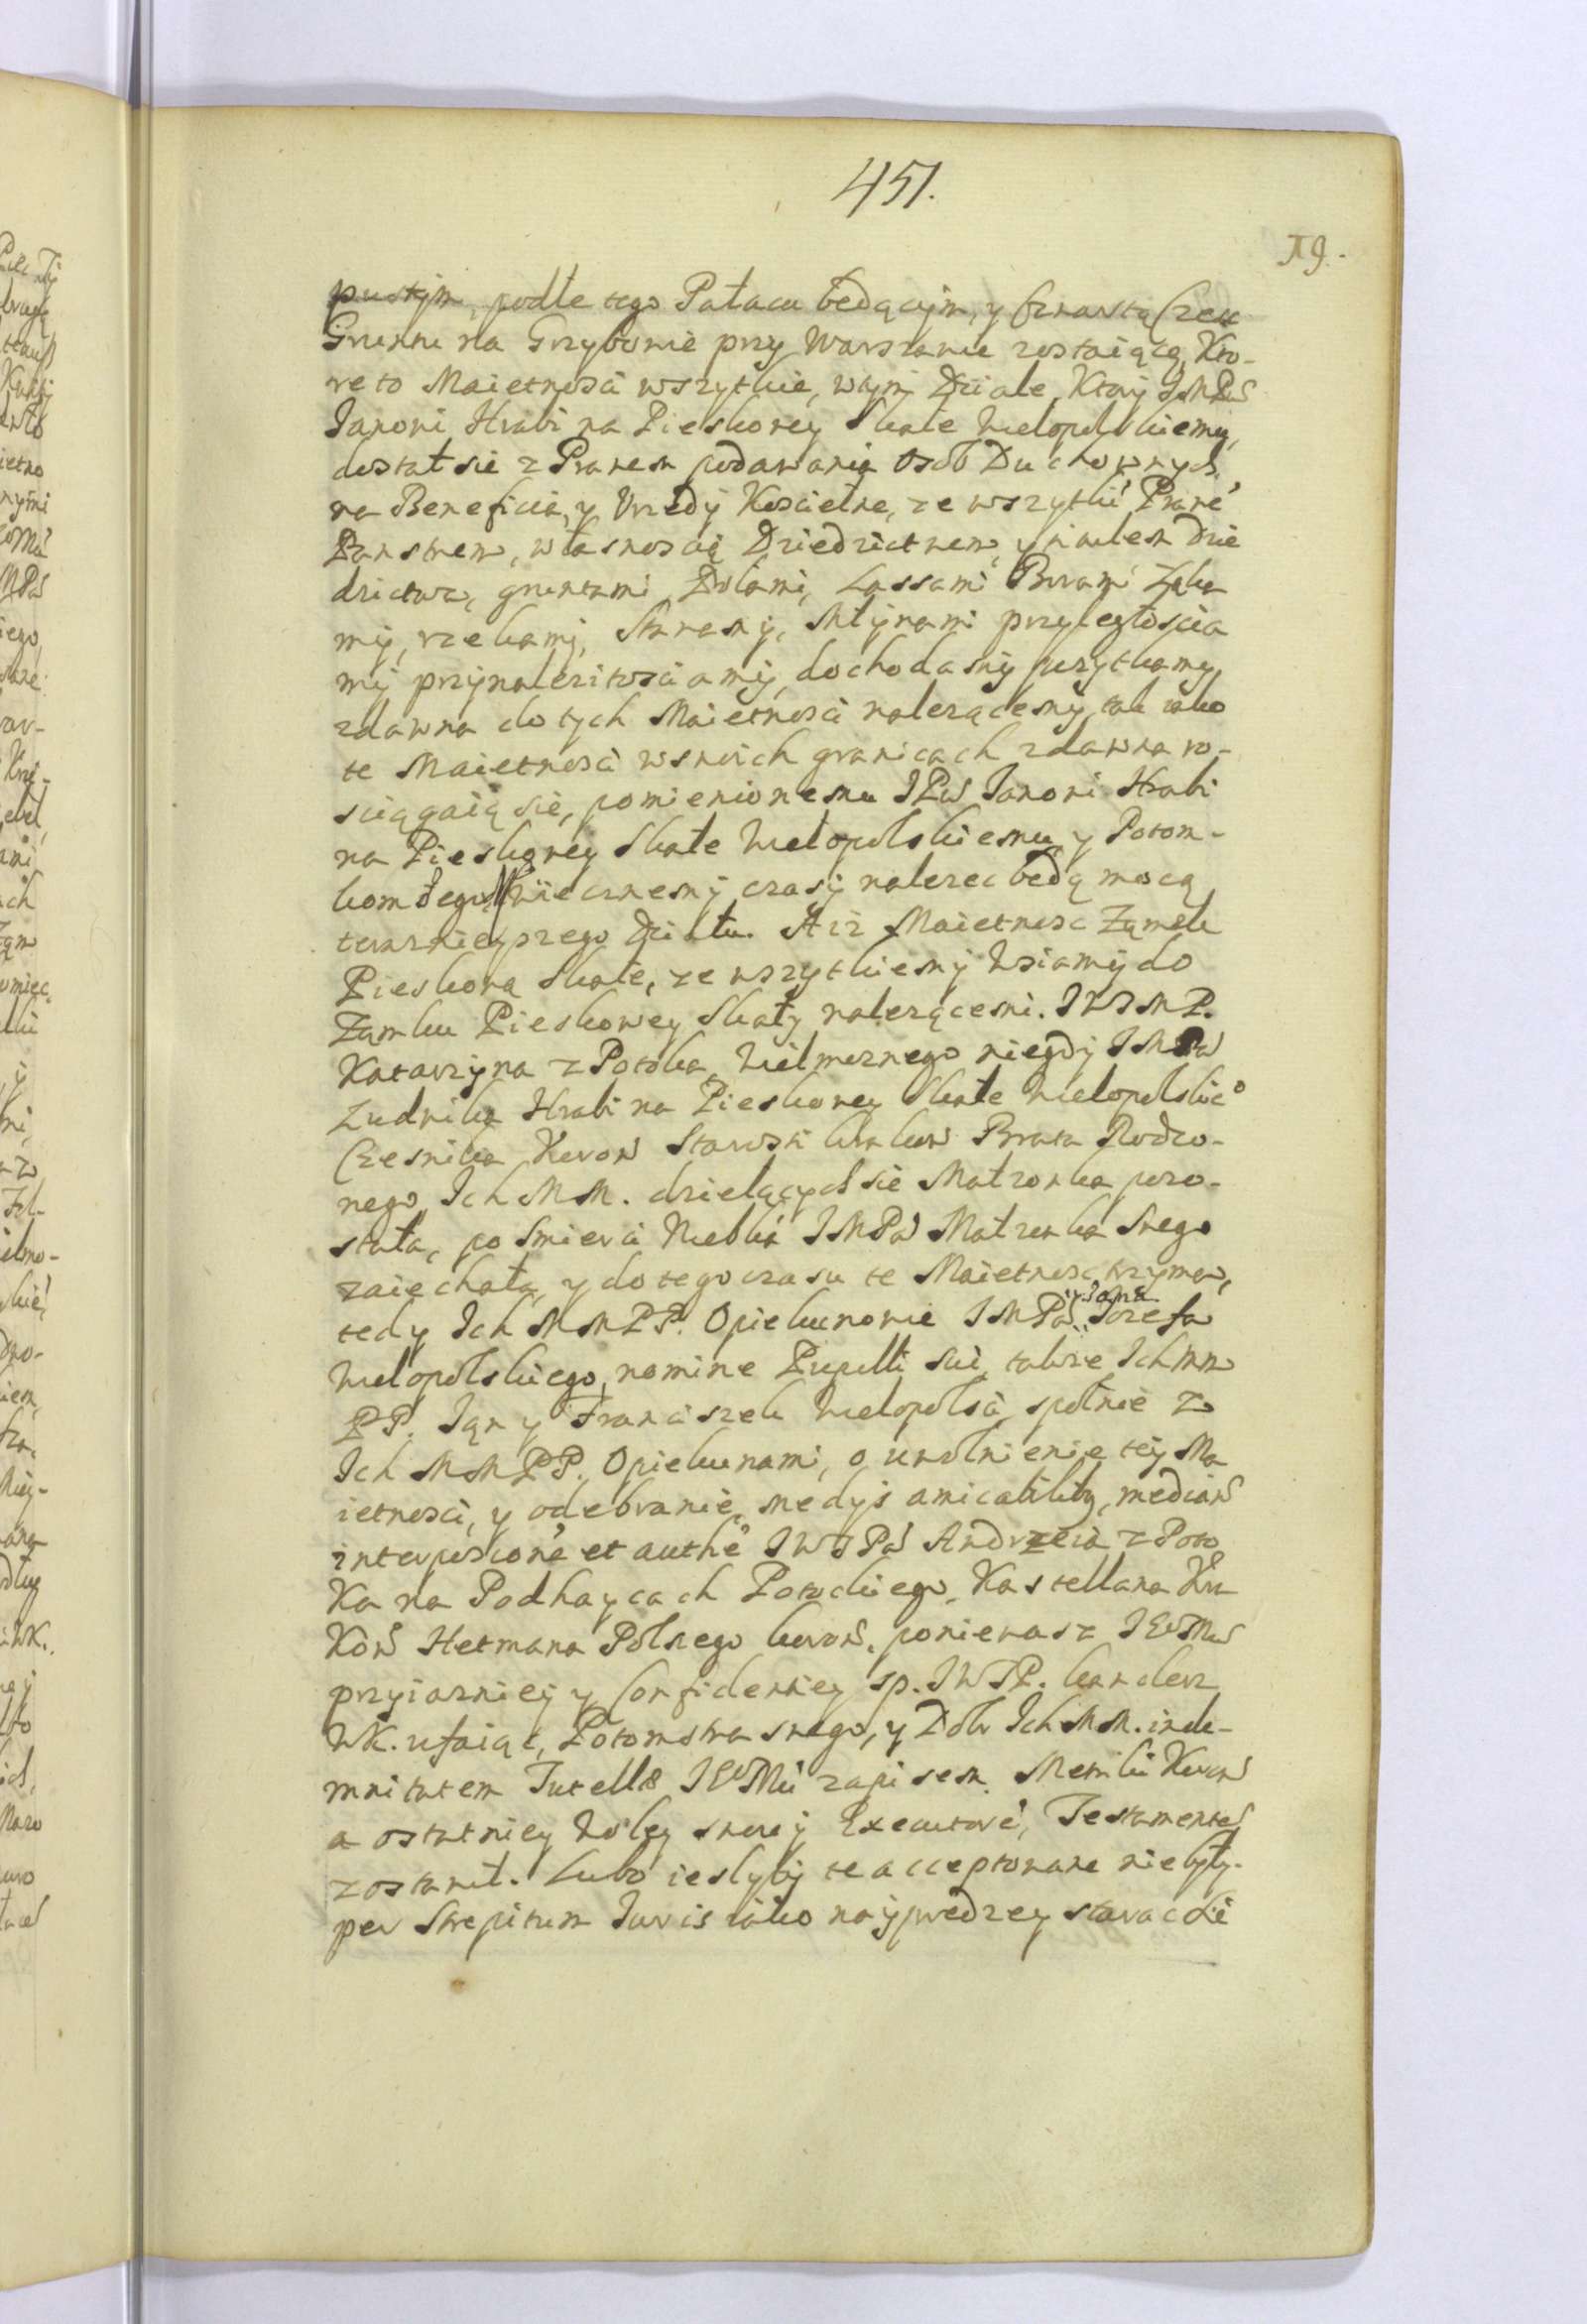 451.
19.
pustym, podle tego Pałacu będącym, y Czwartą Częsc
Gruntu na Grzybowie przy Warszawie zostaiącą. Kto-
re to Maiętnosci wszytkie, w tym Dziale, Ktory JMPu
Janowi Hrabi na Pieskowey Skale Wielopolskiemu,
dostał sie z Prawem podawania Osob Duchownych
na Beneficia, y Vrzędy Koscielne, ze wszytkim Prawem
Panstwem, własnoscią Dziedzictwem, y tytułem Dzie
dzictwa, gruntami Rolami, Lassami Borami Łąka
my, rzekamj, Stawamj, Młynami przyległoscia
mj przynaleznosciamj, dochodamj pozytkamy
zdawna do tych Maiętnosci nalezącemj, tak iako
te Maiętnosci w swoich granicach zdawna ro-
sciągaią sie, pomienionemu JPu Janowi Hrabi
na Pieskowey Skale Wielopolskiemu, y Potom-
kom Jego, wiecznemj czasj nalezec będą mocą
teraznieyszego Działu. A iz Maiętnosc Zamek
Pieskową Skałę, ze wszytkiemj Wsiamj do
Zamku Pieskowey Skały nalezącemi. JWJMP.
Katarzyna z Potoka, Wielmoznego niegdy JMPa
Ludwika Hrabi na Pieskowey Skale Wielopolskieo
Czesnika Koron Starosti Krakow Brata Rodzo-
nego Ich MM. dzielących sie Małzonka pozo-
stała, po smierci Nieboa JMPa Małzonka Swego
zaiechała, y do tego czasu te Maiętnosc trzyma,
tedy Ich MMPP. Opiekunowie JMPa Jozefa
Jana
Wielopolskiego, nomine Pupilli sui, takze Ichmm
PP. Jan y Franciszek Wielopolsci, społnie z
Ich MMPP. Opiekunami, o uwolnienie tej Ma
iętnosci, y odebranie, medijs amicabilibus, median
interposicione et authe JWJPa Andrzeia z Poto
Ka na Podhaycach Potockiego, Kastellana Kra
Kow Hetmana Polnego koron. poniewasz JEoMu
przyiazniey y Confidentiey sp. JWJP. kanclerz
WK. ufaiąc, Potomstwa swego, y Dobr Ich MM. inde-
mnitatem Tutellæ JEoMci zapisem Metriki Koron
a ostatniey Woley swoij Executore, Testamentem
zostawił. Lubo iesliby te acceptowane niebyły.
per Strepitum Juris iako nayprędzey starac sie